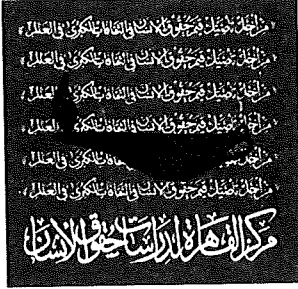 من أجل تأصيل قيم حقوق الإنسان في الثقافات الكبرى في العالم
من أجل تأصيل قيم حقوق الإنسان في الثقافات الكبرى في العالم
من أجل تأصيل قيم حقوق الإنسان في الثقافات الكبرى في العالم
من أجل تأصيل قيم حقوق الإنسان في الثقافات الكبرى في العالم
من أجل تأصيل قيم حقوق في العالم
من أجل تأصيل قيم حقوق الإنسان في الثقافات الكبرى في العالم
مركز القاهرة لدراسات حقوق الإنسان